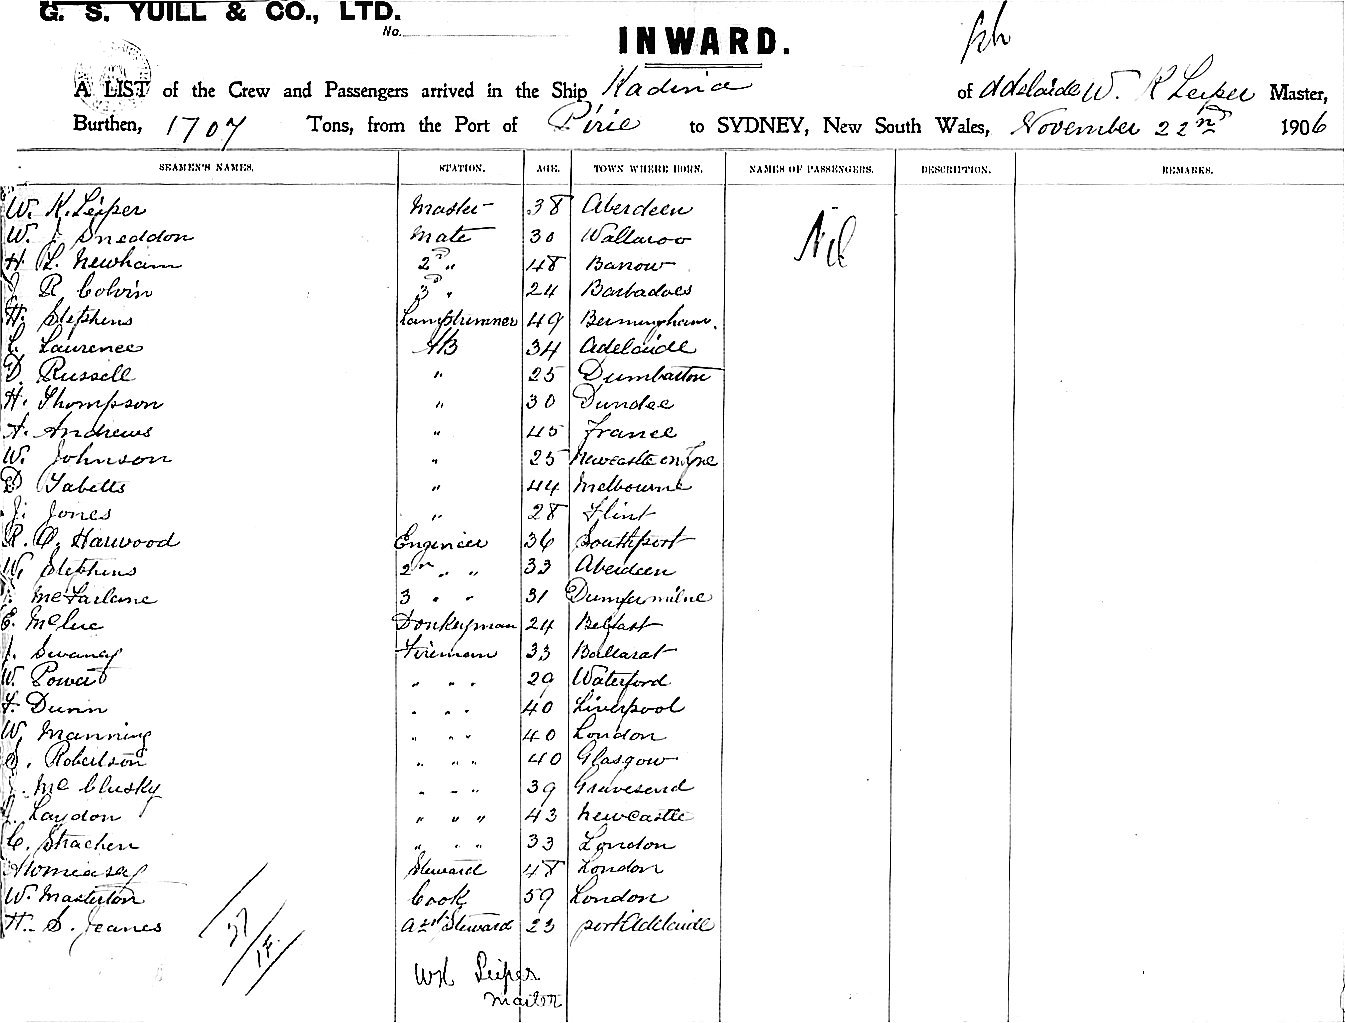 G. S. YUILL & CO., LTD.
No.
INWARD.
A LIST of the Crew and Passengers arrived in the Ship Kadina of Adelaide W. K Leiper Master,
Burthen, 1707 Tons, from the Port of Pirie to SYDNEY, New South Wales, November 22nd 1906
SEAMEN'S NAMES. STATION. AGE. TOWN WHERE BORN. NAMES OF PASSENGERS. DESCRIPTION. REMARKS.
W. K. Leiper Master 38 Aberdeen Nil
W. J Sneddon Mate 30 Wallaroo
H L. Newham 2nd " 48 Barrow
J R Colvin 3rd " 24 Barbadoes
H. Stephens Lamptrimner 49 Bermingham.
C Laurence AB 34 Adelaide
D. Russell " 25 Dumbarton
H. Thompson " 30 Dundee
A. Andrews " 45 France
W. Johnson " 25 Newcastle on Tyne
D Tabetts " 44 Melbourne
J. Jones " 28 Flint
R. O. Harwood Engineer 36 Southport
W. Stephens 2nd " " 33 Aberdeen
McFarlane 3 " " 31 Dumfermilne
E. McCue Donkeyman 24 Belfast
J. Swaney Fireman 33 Ballarat
W. Power " " " 29 Waterford
F. Dunn " " " 40 Liverpool
W. Manning " " " 40 London
S. Robertson " " " 40 Glasgow
J. McClusky " " " 39 Gravesend
J. Laydon " " " 43 Newcastle
C. Strachen " " " 33 London
Steward 48 London
W. Masterton Cook 59 London
H. S. Jeanes Asst Steward 23 port Adelaide
WK Leiper
Master